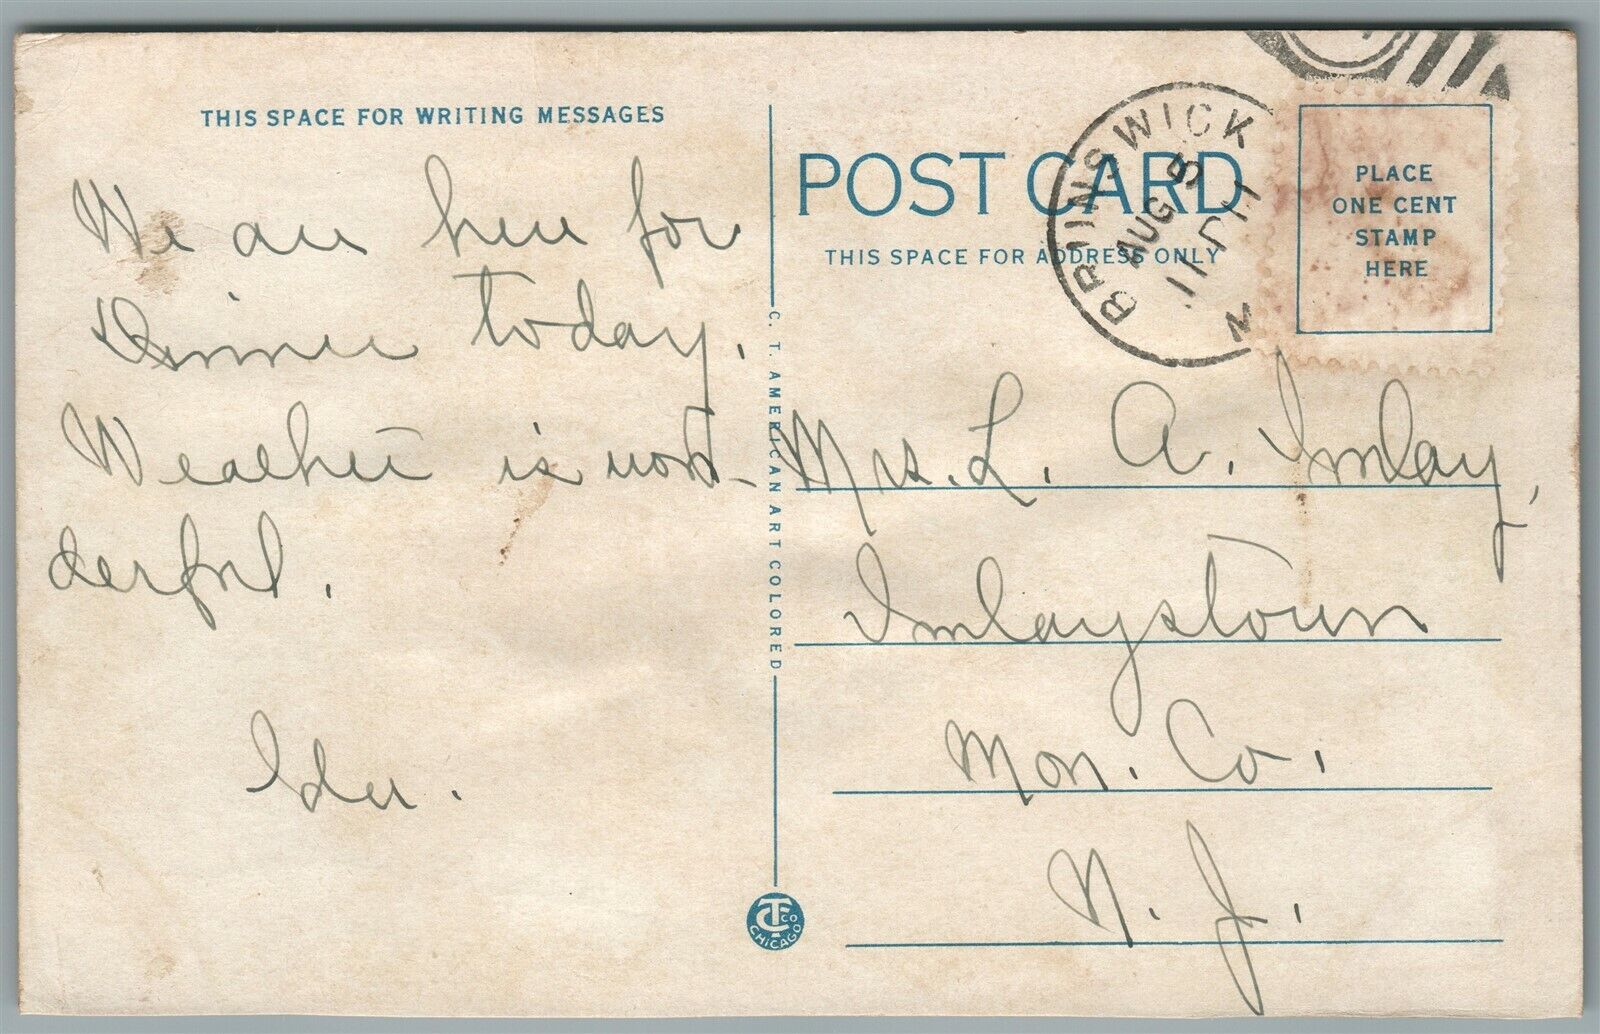 THIS SPACE FOR WRITING MESSAGES
We are here for
Dinner today.
Weather is won-
derful.
C. T. AMERICAN ART COLORED
CT CO
CHICAGO
POST CARD
THIS SPACE FOR ADDRESS ONLY
BRUNSWICK
AUG 5
11
PLACE
ONE CENT
STAMP
HERE
Mrs. L. A. Imlay,
Imlaystown
Mon. Co.
N. J.